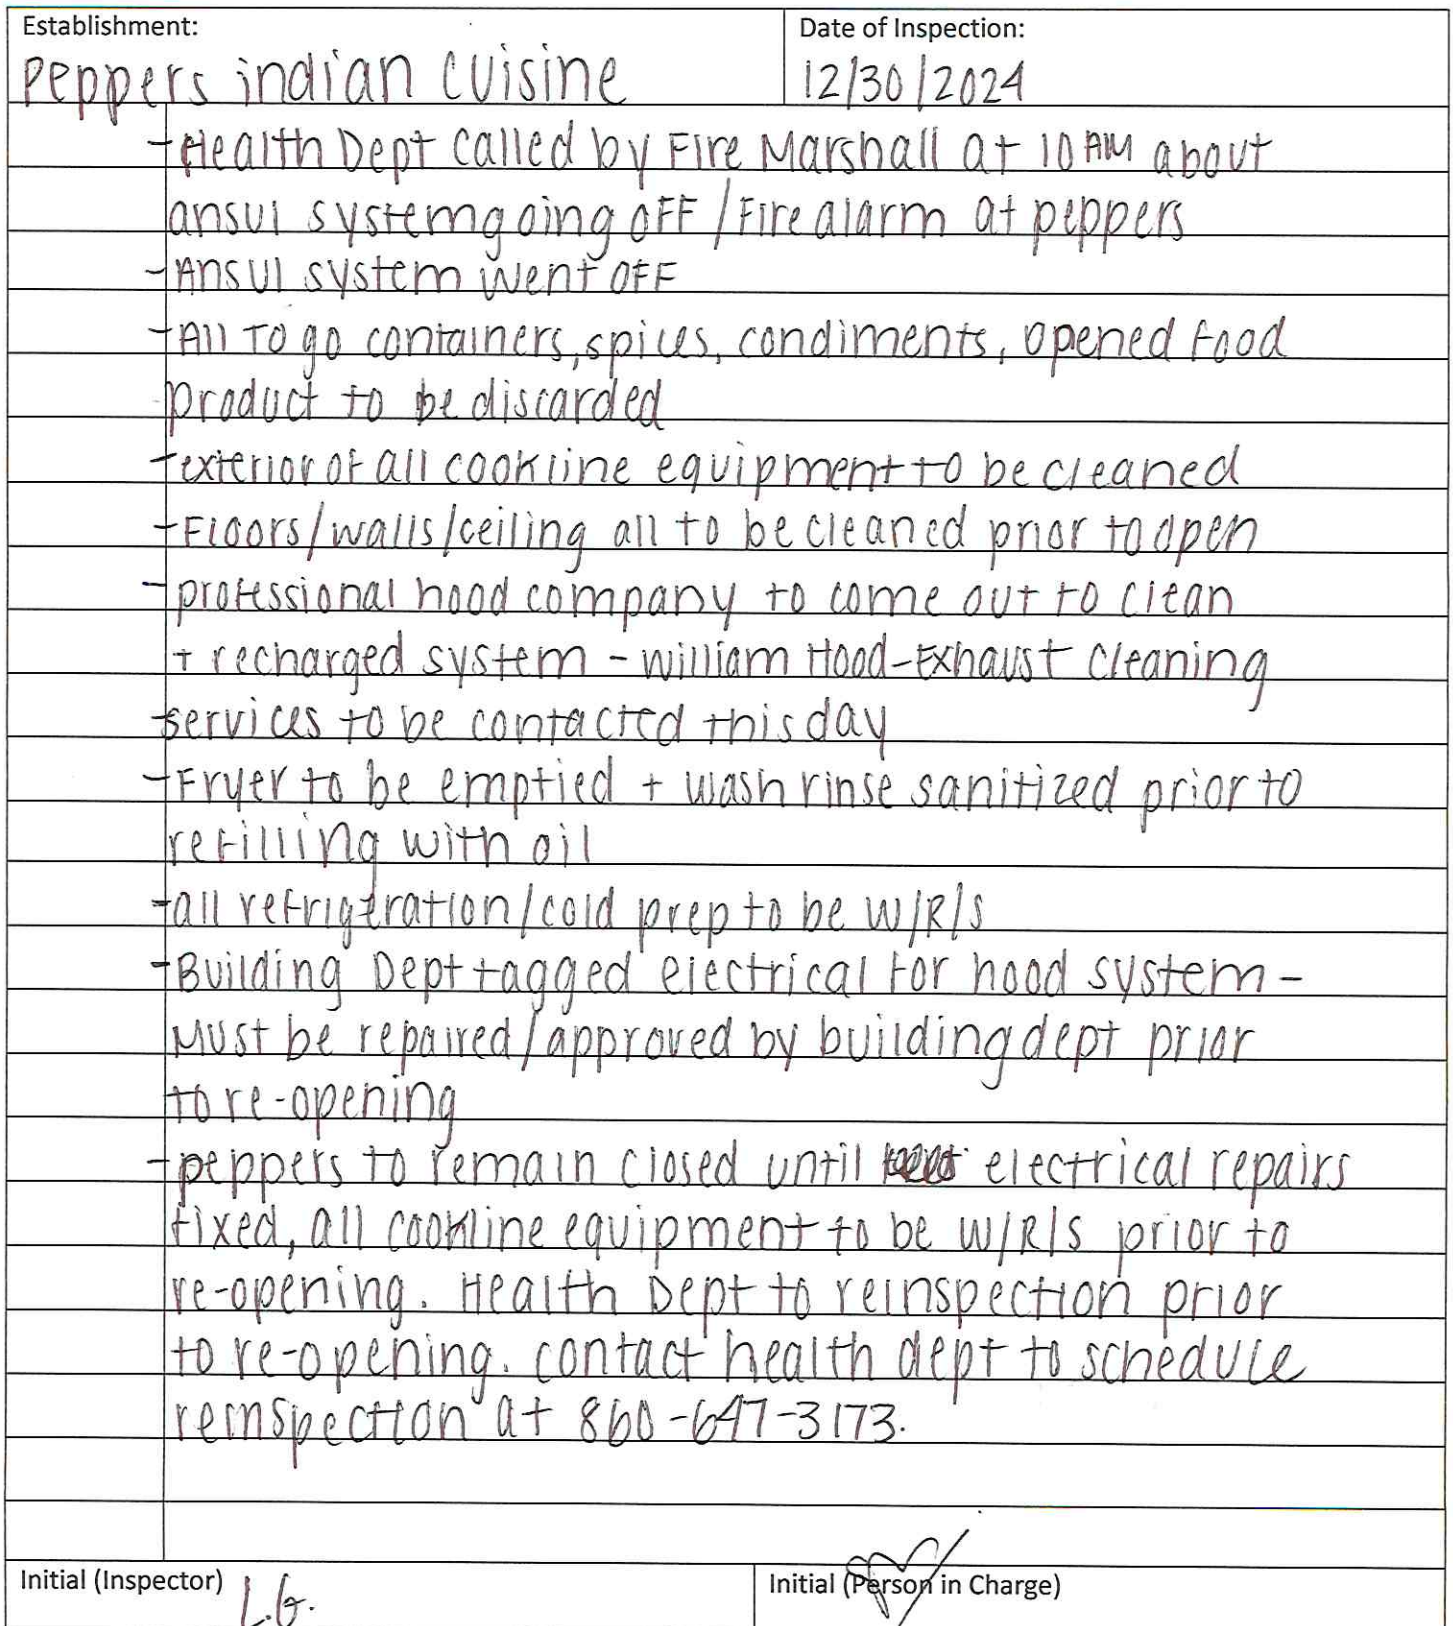 Establishment:
Peppers indian cuisine
Date of Inspection:
12/30/2024
- Health Dept called by Fire Marshall at 10 AM about
ansul system going off / Fire alarm at peppers
- Ansul system went off
- All To go containers, spices, condiments, opened food
product to be discarded
- exterior of all cookline equipment to be cleaned
- Floors/walls/ceiling all to be cleaned prior to open
- professional hood company to come out to clean
+ recharged system - william Hood-Exhaust cleaning
services to be contacted this day
- Fryer to be emptied + wash rinse sanitized prior to
refilling with oil
- all refrigeration/cold prep to be W/R/S
- Building Dept tagged electrical for hood system -
Must be repaired/approved by building dept prior
to re-opening
- peppers to remain closed until electrical repairs
fixed, all cookline equipment to be W/R/S prior to
re-opening. Health Dept to reinspection prior
to re-opening. contact health dept to schedule
reinspection at 860-647-3173.
Initial (Inspector) L.G.
Initial (Person in Charge)